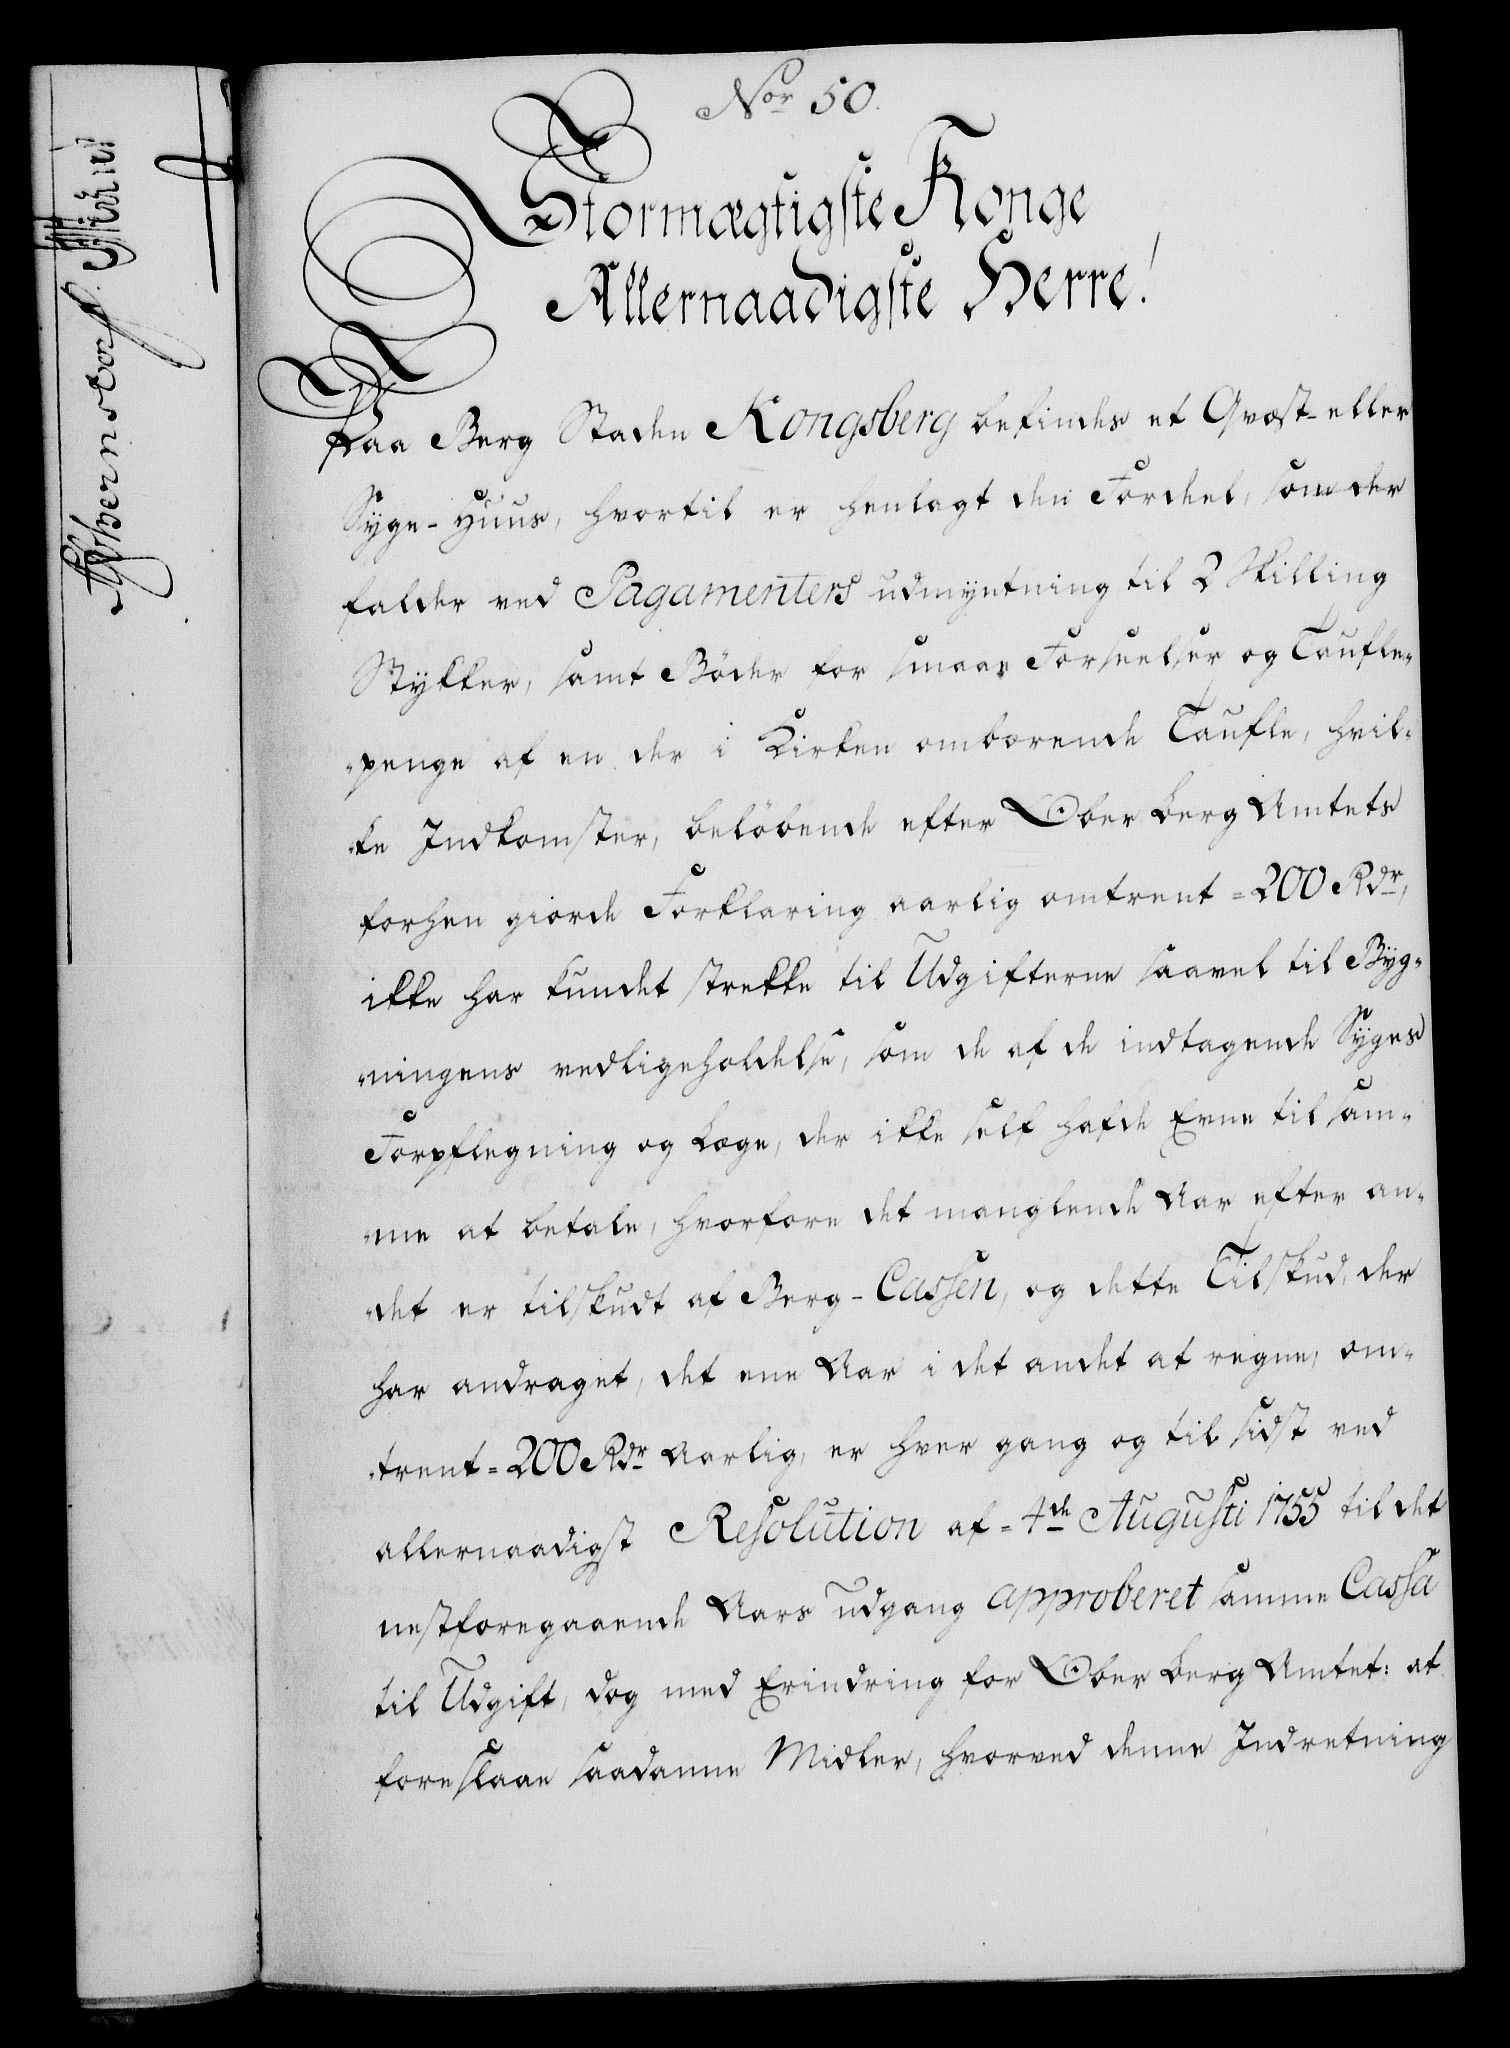 Nor 50.
Stormægtigste Konge
Allernaadigste Herre!
Paa Berg Staden Kongsberg befindes et Qvæst- eller
Syge-Huus, hvortil er henlagt den Fordeel, som der
falder ved Pagamenters udmyntning til 2 Skilling
Stykker, samt Bøder for smaae Forseelser og Taufle-
-penge af en der i Kirken ombærende Taufle, hvil-
-ke Indkomster, beløbende efter Ober Berg Amtets
forhen giorde Forklaring aarlig omtrent = 200 Rdr,
ikke har kundet strekke til Udgifterne saavel til Byg-
-ningens vedligeholdelse, som de af de indtagende Syges
Forpflegning og Læge, der ikke self hafde Evne til sam-
-me at betale, hvorfore det manglende Aar efter an-
-det er tilskudt af Berg-Cassen, og dette Tilskud, der
har andraget, det ene Aar i det andet at regne, om-
-trent = 200 Rdr Aarlig, er hver gang og til sidst ved
allernaadigst Resolution af = 4de Augusti 1755 til det
nestforegaaende Aars Udgang approberet samme Cassa
til Udgift, dog med Erindring for Ober Berg Amtet: at
foreslaae saadanne Midler, hvorved denne Indretning